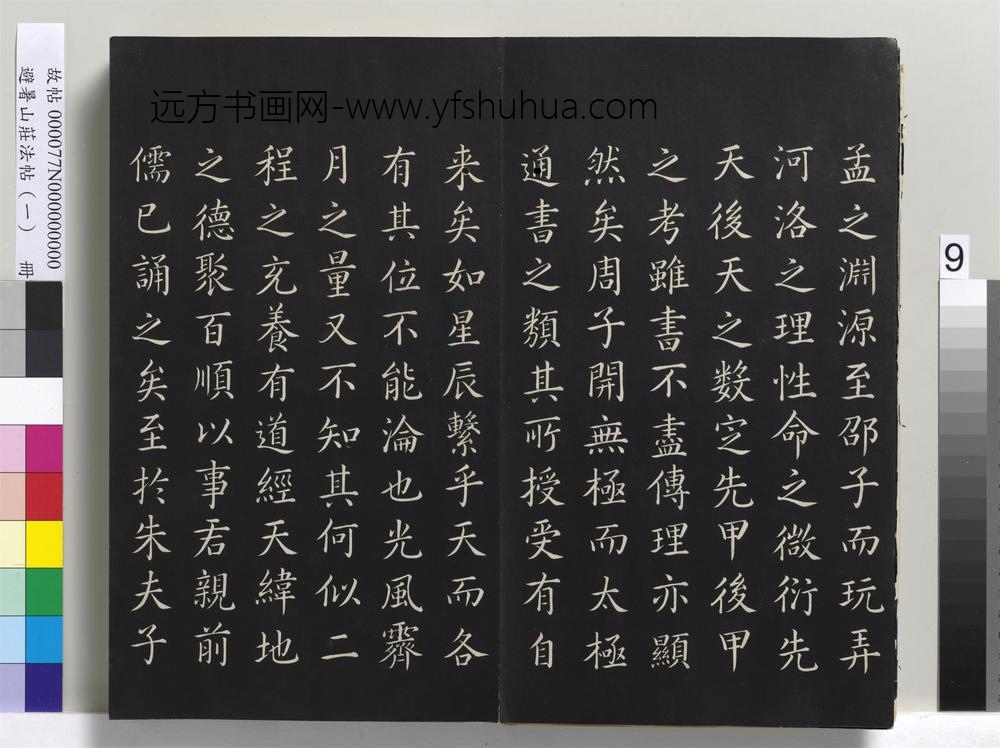 孟之淵源至邵子而玩弄
河洛之理性命之微衍先
天後天之數定先甲後甲
之考雖書不盡傳理亦顯
然矣周子開無極而太極
通書之類其所授受有自
来矣如星辰繫乎天而各
有其位不能淪也光風霽
月之量又不知其何似二
程之充養有道經天緯地
之德聚百順以事君親前
儒已誦之矣至於朱夫子
远方书画网-www.yfshuhua.com
故帖000077N000000000
避暑山莊法帖（一） 冊
9